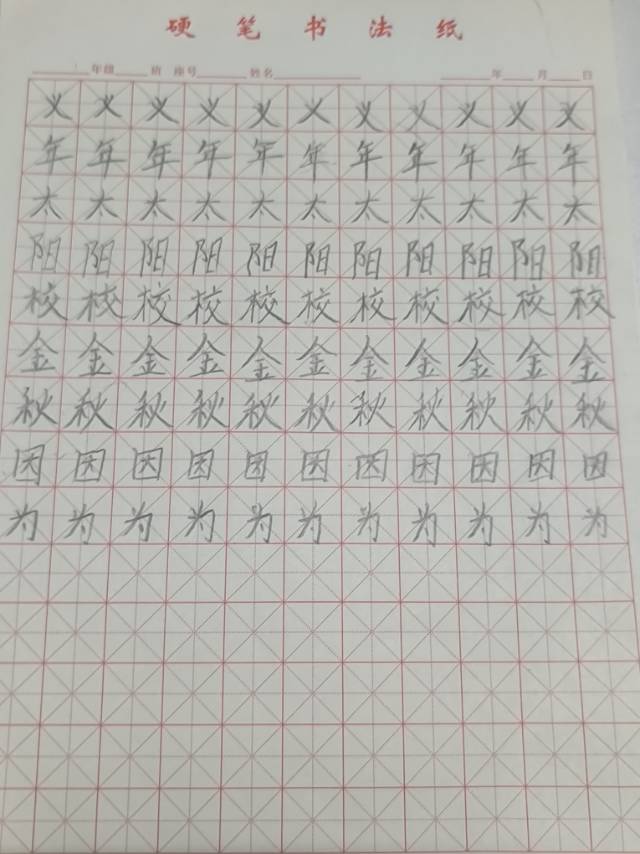 硬笔书法纸
年级 班 座号 姓名 年 月 日
义义义义义义义义义义义
年年年年年年年年年年年
太太太太太太太太太太太
阳阳阳阳阳阳阳阳阳阳阳
校校校校校校校校校校校
金金金金金金金金金金金
秋秋秋秋秋秋秋秋秋秋秋
因因因因因因因因因因因
为为为为为为为为为为为